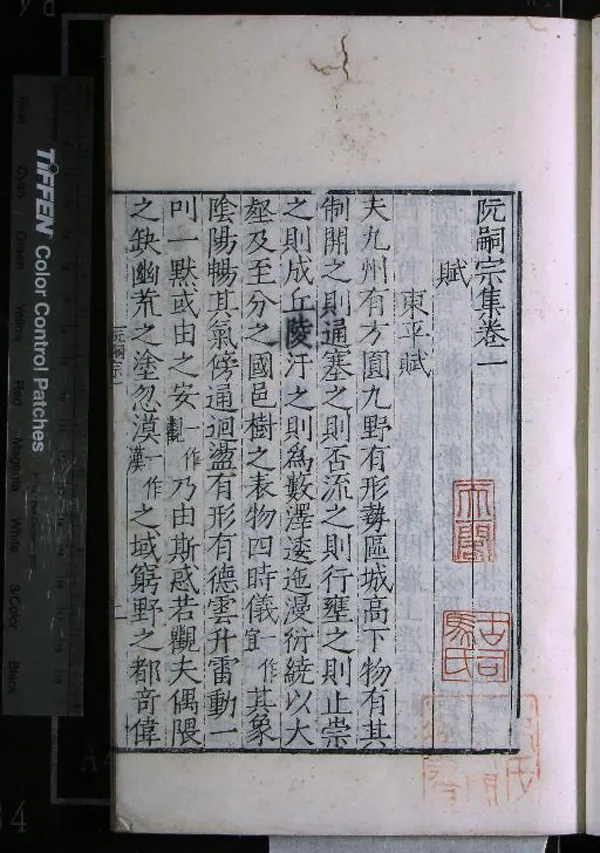 阮嗣宗集卷一
賦
東平賦
夫九州有方圓九野有形勢區域高下物有其
制開之則通塞之則否流之則行壅之則止崇
之則成丘陵汙之則為藪澤逶迤漫衍繞以大
壑及至分之國邑樹之表物四時儀宜一作其象
陰陽暢其氣傍通迴盪有形有德雲升雷動一
叫一默或由之安觀一作乃由斯惑若觀夫偶隈
之缺幽荒之塗忽漠漢一作之域窮野之都奇偉
阮嗣宗一
古司馬氏
TIFFEN Color Control Patches
Blue
Cyan
Green
Yellow
Red
Magenta
White
3/Color
Black